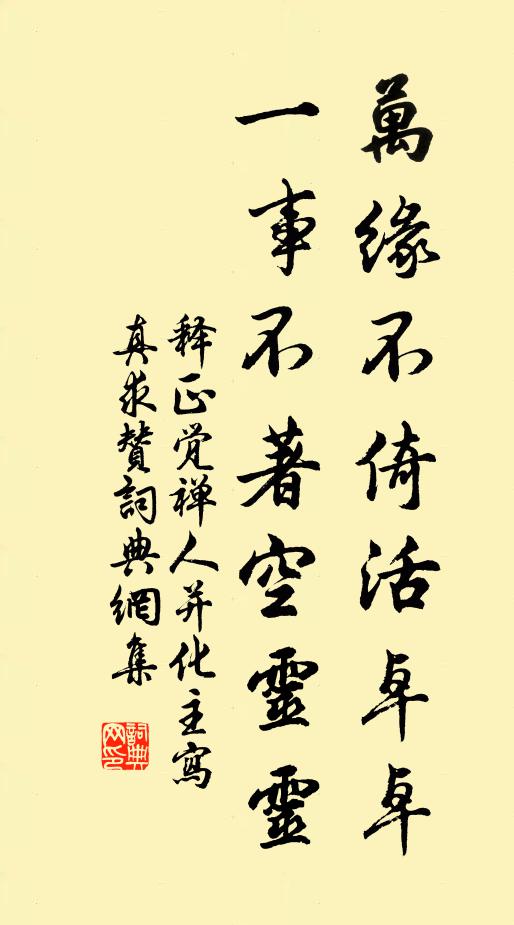 萬緣不倚活卓卓
一事不著空靈靈
释正觉禅人并化主寫
真求贊詞典網集
詞典網印